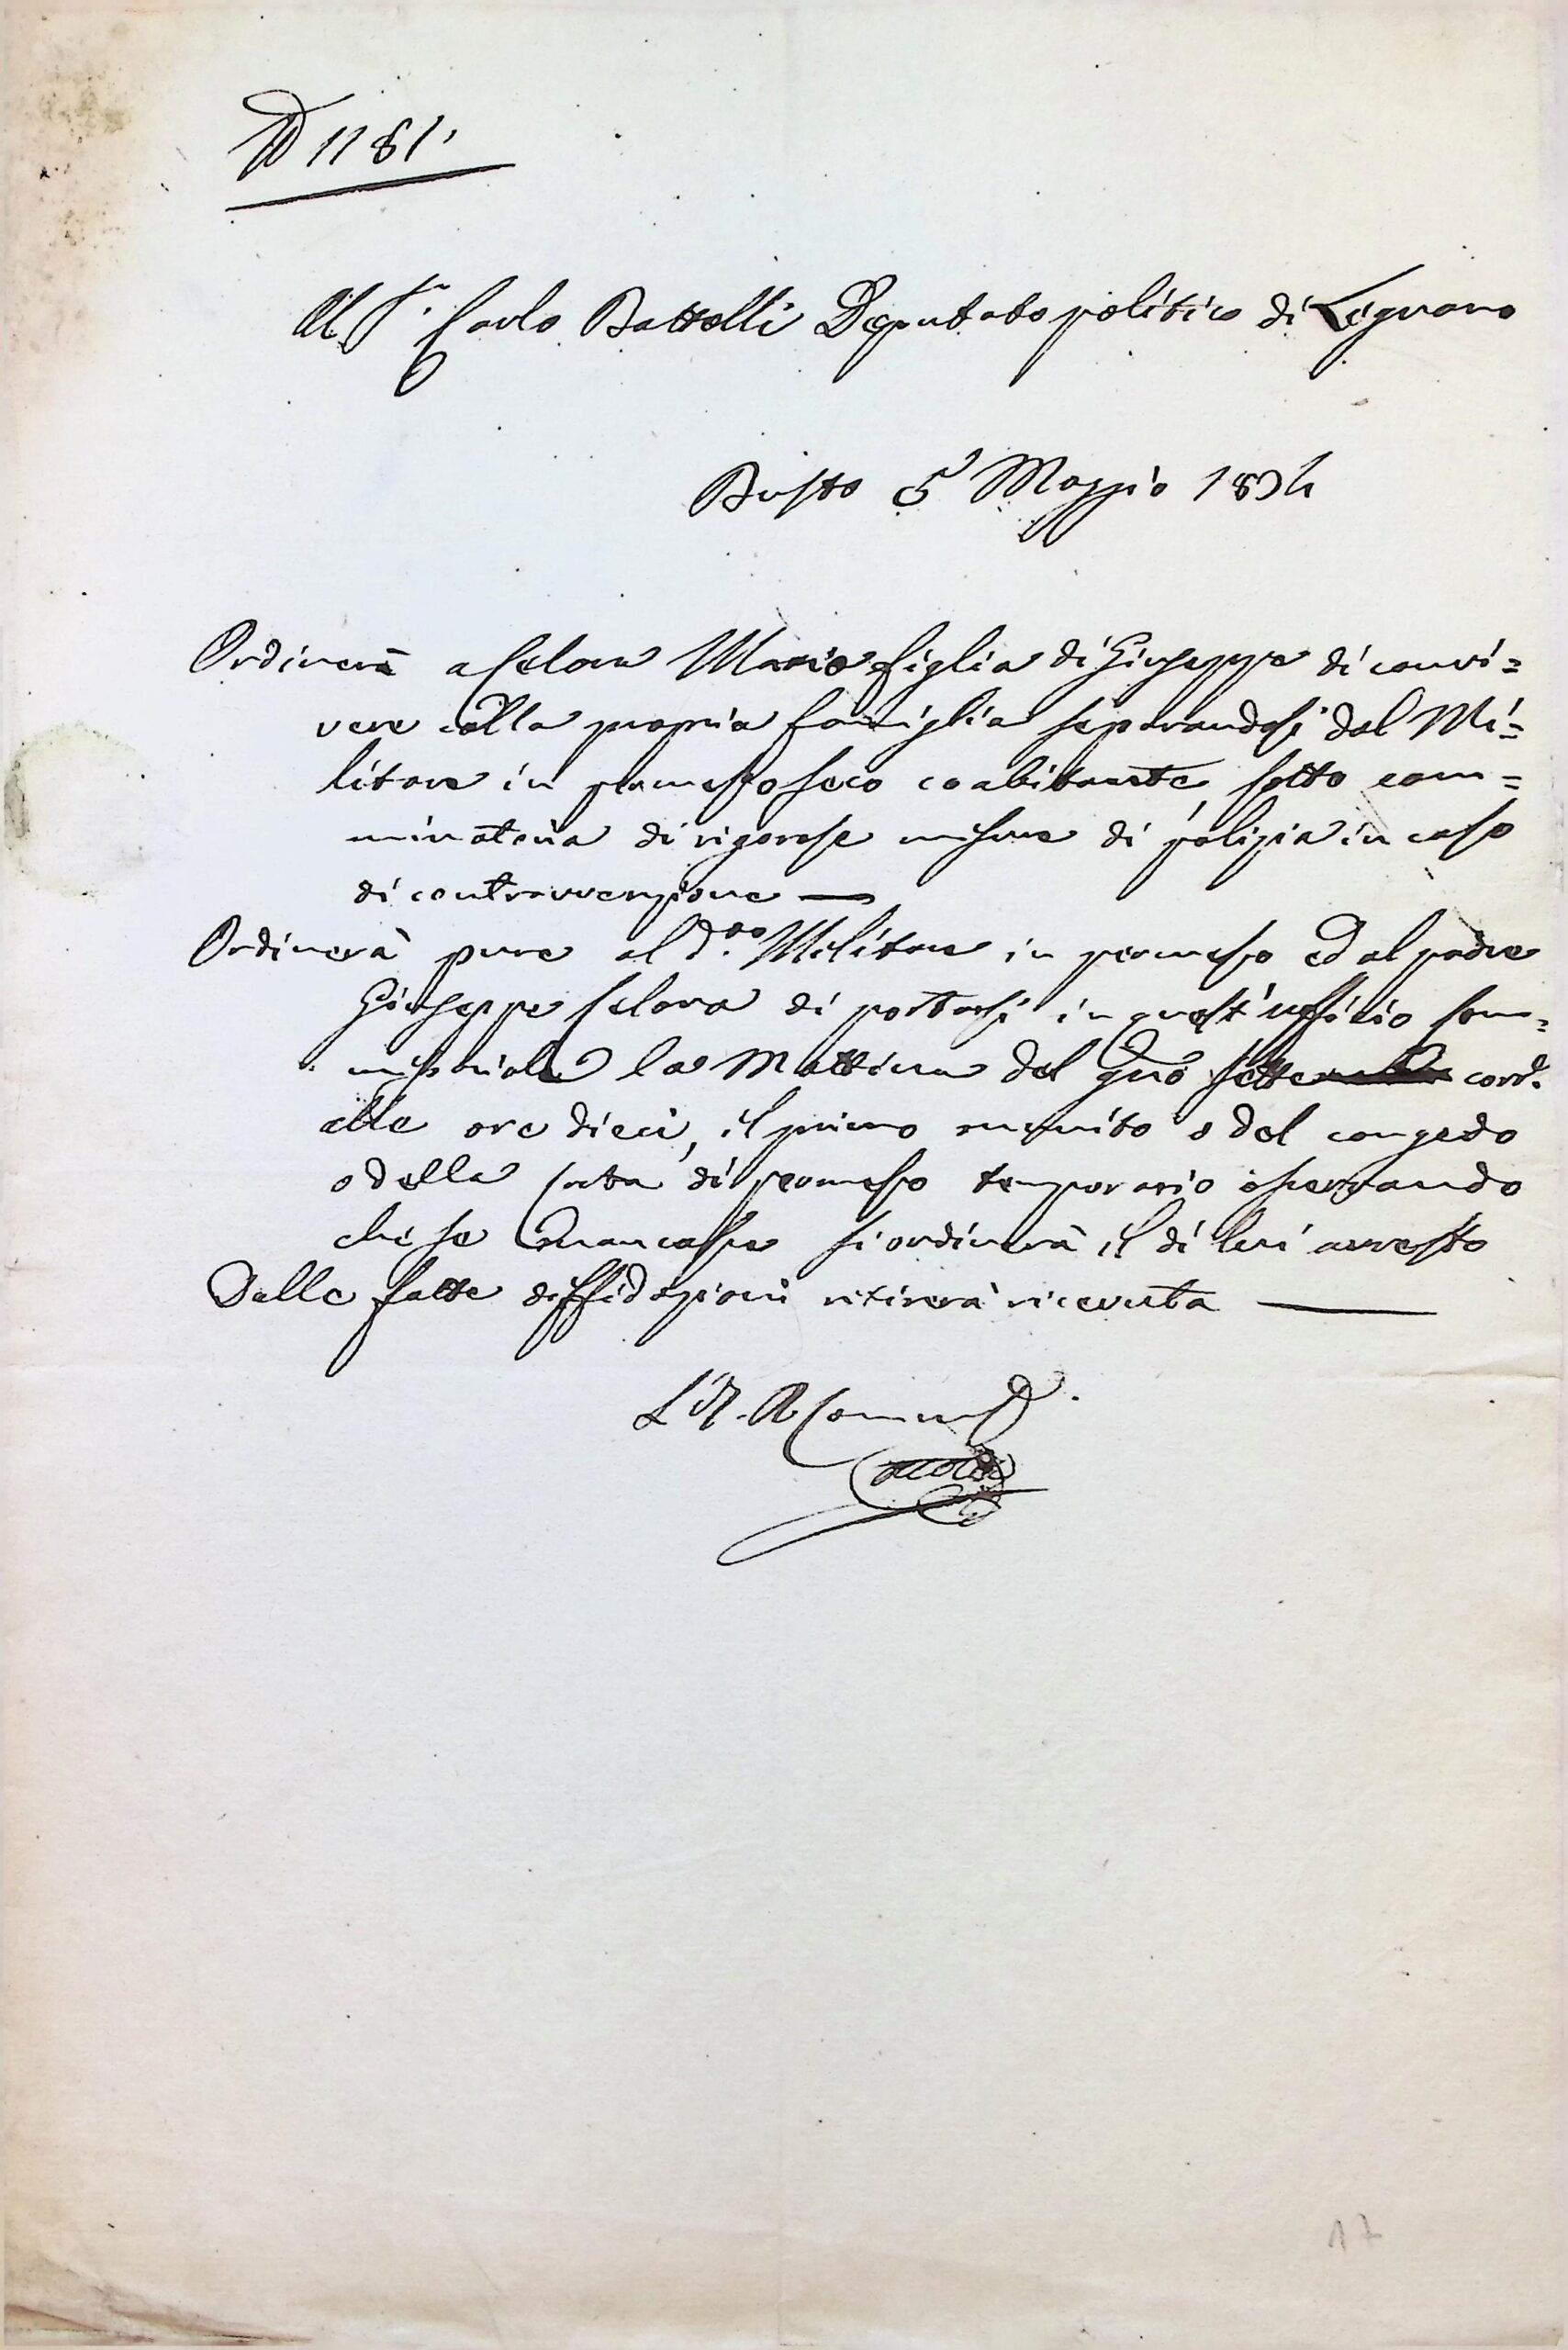 N 1181.
Al Sr. Carlo Battelli Deputato politico di Legnano
Busto 5 Maggio 1834
Ordinerà a Colova Maria figlia di Giuseppe di convi=
vere colla propria famiglia separandosi dal Mi=
litare in permesso seco coabitante, sotto com=
minatoria di rigorose misure di polizia in caso
di contravvenzione —
Ordinerà pure al do. Militare in permesso ed al padre
Giuseppe Colova di portarsi in quest'ufficio Com=
missariale la Mattina del gno sette cord.
alle ore dieci, il primo munito o del congedo
o della carta di permesso temporario osservando
che se mancasse si ordinerà il di lui arresto
Delle fatte diffidazioni ritirerà ricevuta —
L'I. R. Commiss.
17